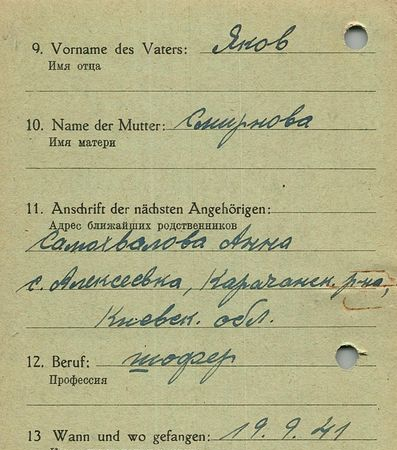 9. Vorname des Vaters: Яков
Имя отца
10. Name der Mutter: Смирнова
Имя матери
11. Anschrift der nächsten Angehörigen:
Адрес ближайших родственников
Самохвалова Анна
с. Алексеевка, Карачанск. р-на,
Киевск. обл.
12. Beruf: шофер
Профессия
13 Wann und wo gefangen: 19. 9. 41